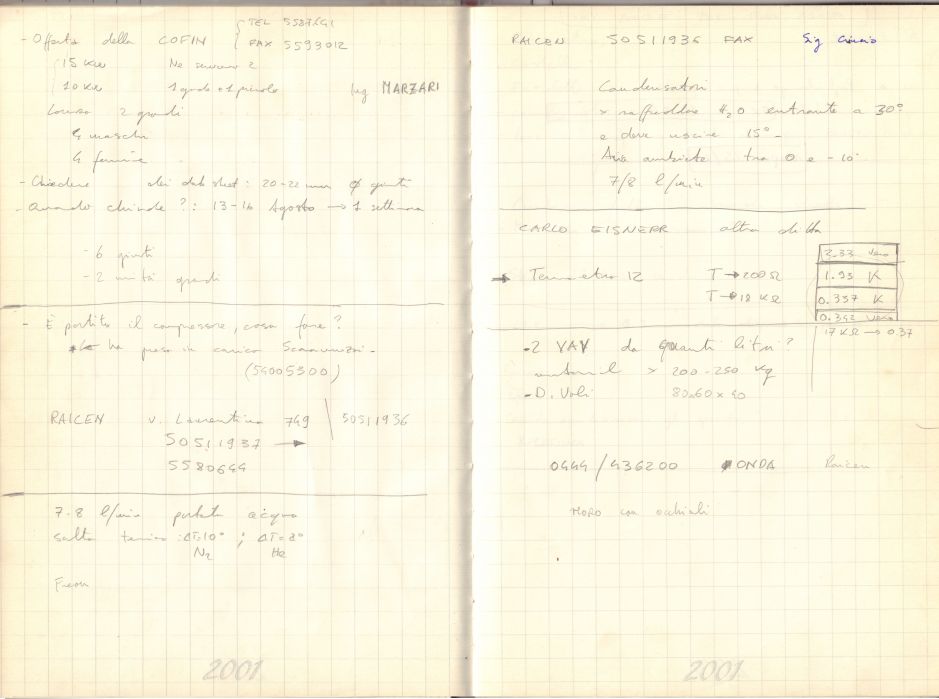 TEL 5587641
- Offerta della COFIN FAX 5593012
15 KW Ne servono 2
10 KW 1 grande + 1 piccolo Ing MARZARI
2 grandi
4 maschi
4 femmine
- Chiedere dei data sheet: 20-22 mm Ø giunti
- Quando chiude?: 13-16 Agosto → 1 settimana
- 6 giunti
- 2 metà grandi
- È partito il compressore, cosa fare?
ha preso in carico
(54005300)
RAICEN v. Laurentina 749 50511936
50511937 →
5580644
7.8 l/min portata acqua
salto termico: ΔT=10° ; ΔT=2°
N2 He
Freon
2001
RAICEN 50511936 FAX Sig
Condensatori
x raffreddare H2O entrante a 30°
e deve uscire 15°-
Aria ambiente tra 0 e -10°
7/8 l/min
CARLO EISNERR altra ditta
→ Termometro 12 T → 200 Ω
T → 12 KΩ
3.33 vero
1.93 K
0.337 K
0.342 vero
17 KΩ → 0.37
- 2 VAV da quanti litri?
x 200-250 Kg
- D. Voli 80x60x40
0444/436200 ONDA Raicen
MORO con occhiali
2001